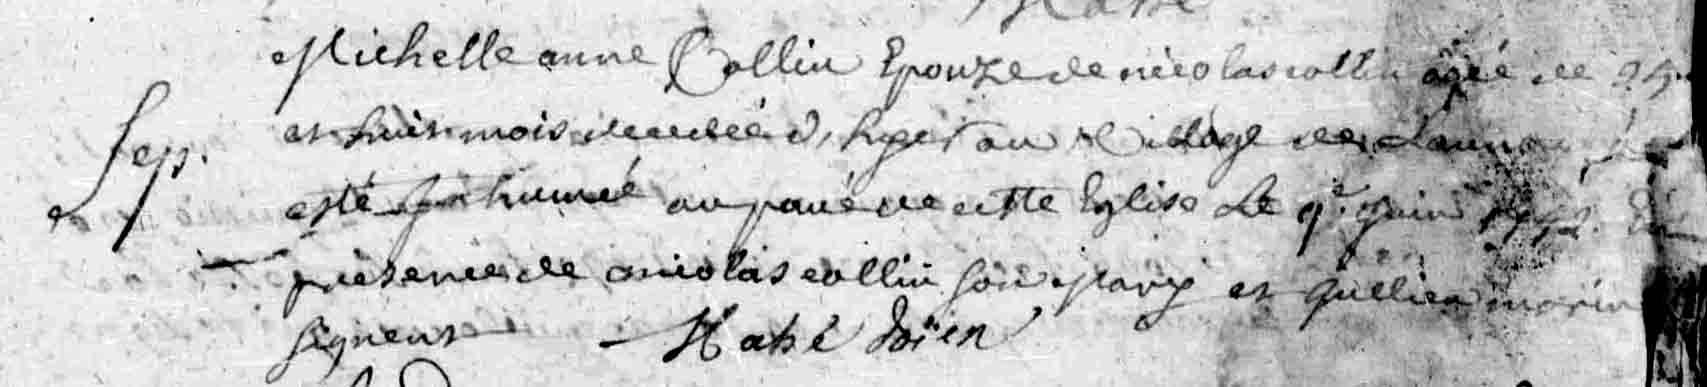 Michelle anne Collin Epouze de nicolas collin agé de
et huit mois decedée d' hyer au Village de Launay
Sep. esté Inhumé au pavé de cette Eglise Le 9e Juin
presence de nicolas collin son Mary et Jullien morin
signent